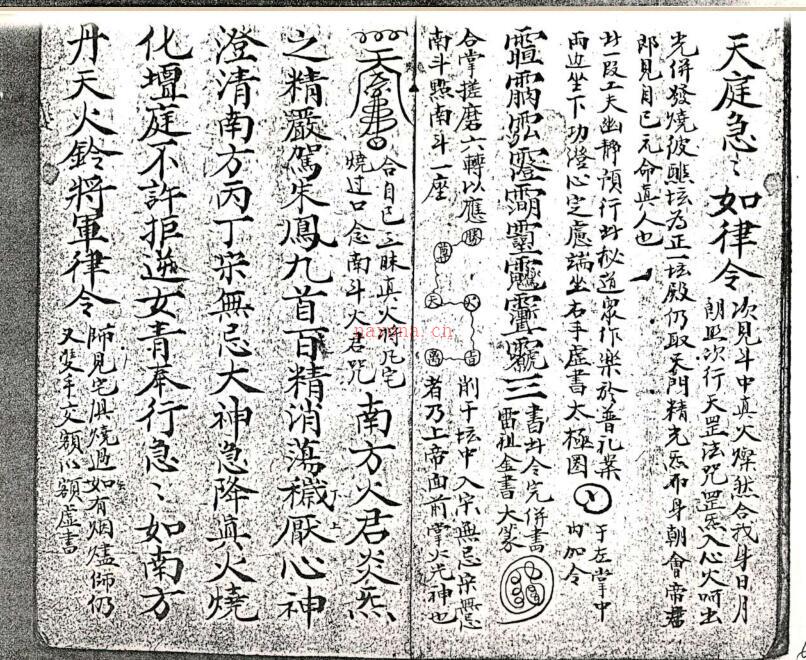 天庭急〻如律令 次見斗中真火燦然合我身日月
朗照次行天罡法咒罡炁入心火呵出
光併發燒彼醮坛為正一坛殿仍取天門精光炁布身朝會帝君
即見自己元命真人也
此一段工夫幽靜預行此秘道眾作樂於普礼業
兩边坐下功澄心定慮端坐右手虛書太極圖 于左掌中
內加令
三 書此令完併書
雷祖金書大篆
合掌搓磨六轉以應
南斗點南斗一座
火
天
削于坛中入宋無忌宋無忌
者乃上帝面前掌火光神也
nayona.cn
合自己三昧真火
燒过口念南斗火君咒
南方火君炎炁
之精嚴駕朱鳳九首百精消蕩穢厭心神
上下
澄清南方丙丁宋無忌大神急降真火燒
化壇庭不許拒逆女青奉行急〻如南方
丹天火鈴將軍律令 師見宅俱燒過如有烟爐師仍
又雙手文額以額虛書